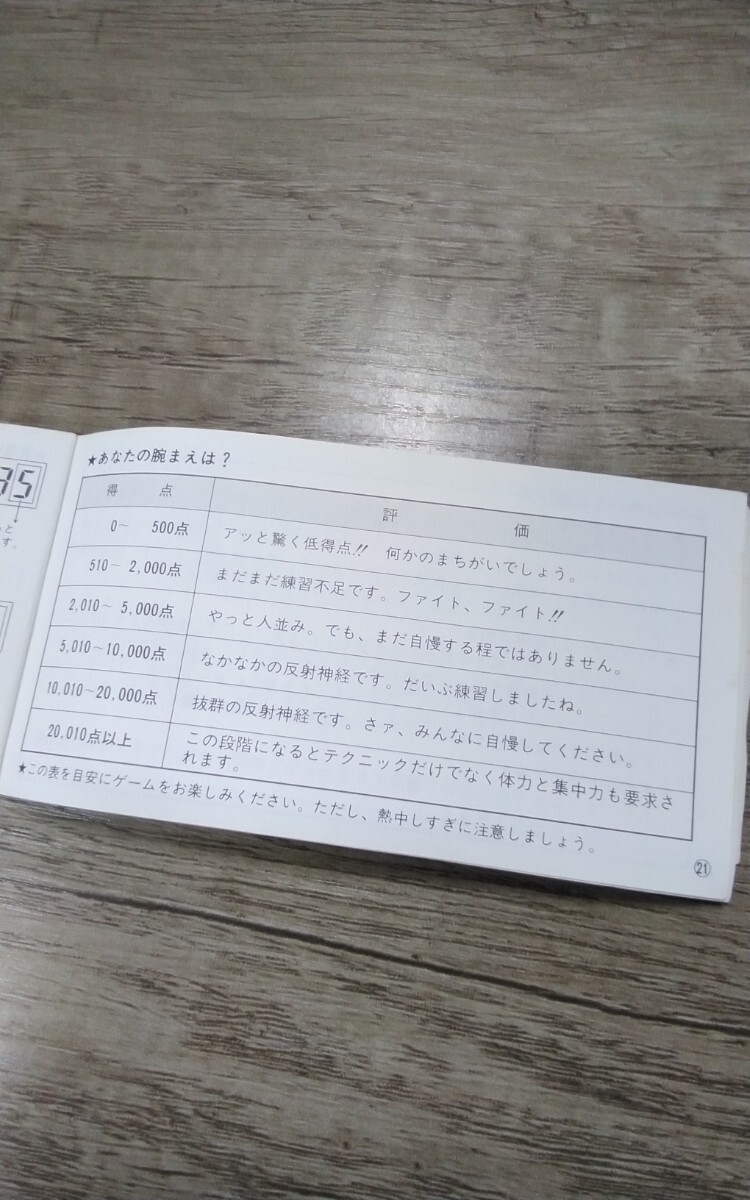 35
と
す。
★あなたの腕まえは?
得 点 評 価
0~ 500点 アッと驚く低得点!! 何かのまちがいでしょう。
510~ 2,000点 まだまだ練習不足です。ファイト、ファイト!!
2,010~ 5,000点 やっと人並み。でも、まだ自慢する程ではありません。
5,010~10,000点 なかなかの反射神経です。だいぶ練習しましたね。
10,010~20,000点 抜群の反射神経です。さァ、みんなに自慢してください。
20,010点以上 この段階になるとテクニックだけでなく体力と集中力も要求さ
れます。
★この表を目安にゲームをお楽しみください。ただし、熱中しすぎに注意しましょう。
㉑